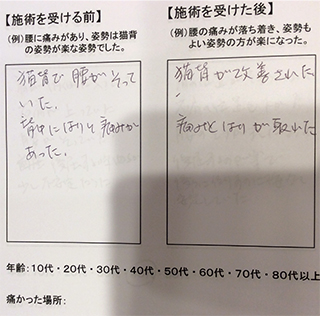 【施術を受ける前】
(例)腰に痛みがあり、姿勢は猫背
の姿勢が楽な姿勢でした。
猫背で腰がそって
いた。
背中にはりと痛みが
あった。
【施術を受けた後】
(例)腰の痛みが落ち着き、姿勢も
よい姿勢の方が楽になった。
猫背が改善された
痛みとはりが取れた
年齢:10代・20代・30代・40代・50代・60代・70代・80代以上
痛かった場所: